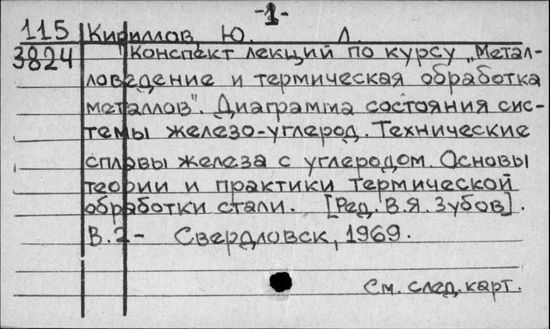 -1-
115 Кириллов, Ю. Л.
3824 Конспект лекций по курсу „Метал-
ловедение и термическая обработка
металлов". Диаграмма состояния сис-
темы железо-углерод. Технические
сплавы железа с углеродом. Основы
теории и практики термической
обработки стали. [Ред. В.Я. Зубов].
В.2- Свердловск, 1969.
См. след. карт.